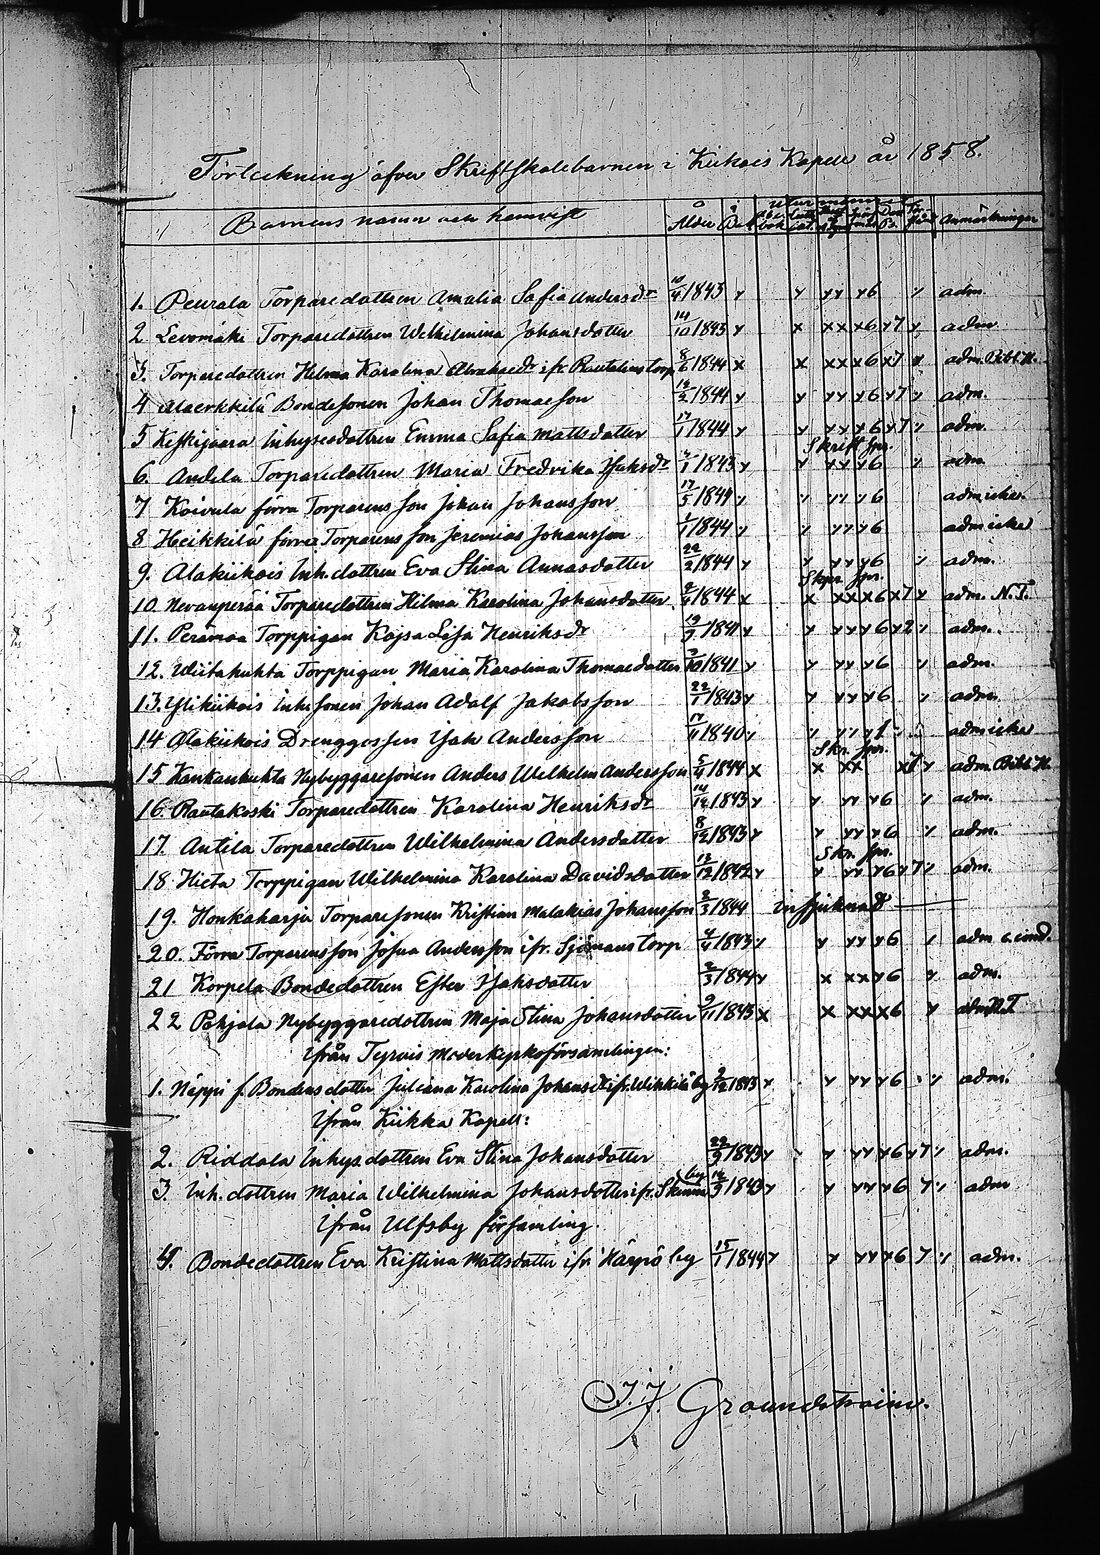 Förteckning öfver Skriftskolebarnen i Kiikois Kapell år 1858.
Barnens namn och hemvist Ålder Anmärkningar
1. Peurala Torparedottren Amalia Sofia Andersdr 10/4 1843 adm.
2 Levomäki Torparedottren Wilhelmina Johansdotter 14/10 1843 adm
3. Torparedottren Hilma Karolina Abrahasdr ifr Rautelins torp 8/6 1844 adm. Bibl. H.
4 Alaerkkilä Bondesonen Johan Thomasson 12/2 1844 adm.
5 Keskijaara Inhysesdottren Emma Sofia Mattsdotter 17/1 1844 adm.
Skrift spr.
6. Andela Torparedottren Maria Fredrika Isaksdr 1843 adm.
7 Koivula förra Torparens son Johan Johansson 17/5 1844 adm icke
8 Heikkilä förra Torparens son Jeremias Johansson 1844 adm icke
9. Alakiikois Inh. dottren Eva Stina Annasdotter 22/2 1844 adm.
Skr. spr.
10. Nevanperää Torparedottren Hilma Karolina Johansdotter 1844 adm. N.T.
11. Perämaa Torppigan Kajsa Lisa Henriksdr 19/9 1841 adm.
12. Wiitakuhta Torppigan Maria Karolina Thomasdotter 1841 adm.
13. Ylikiikois Inh. sonen Johan Adolf Jakobsson 22/1 1843 adm.
14 Alakiikois Drenggossen Isak Andersson 17/11 1840 adm icke
Skr. spr.
15 Kankaukuhta Nybyggaresonen Anders Wilhelm Andersson 5/4 1844 adm. Bibl. H.
16. Rautakoski Torparedottren Karolina Henriksdr 14/12 1843 adm.
17. Antila Torparedottren Wilhelmina Andersdotter 8/12 1843 adm.
Skr. spr.
18. Hieta Torppigan Wilhelmina Karolina Davidsdotter 13/12 1842 adm.
19. Honkaharju Torparesonen Kristian Malakias Johansson 2/3 1844
20. Förra Torparens son Josua Andersson ifr. Sjömans torp 4/4 1843 adm c. cond.
21 Korpela Bondedottren Ester Isaksdotter 2/3 1844 adm.
22 Pohjola Nybyggaredottren Maja Stina Johansdotter 9/11 1843 adm N.T
ifrån Tyrvis Moderkyrkoförsamlingen:
1. Näppi f. Bondens dotter Juliana Karolina Johansdr 2/12 1843 adm.
ifrån Kiikka Kapell:
2. Riddala Inhys. dottren Eva Stina Johansdotter 22/9 1843 adm.
3. Inh. dottren Maria Wilhelmina Johansdotter ifr. by 14/9 1843 adm
ifrån Ulfsby församling.
4. Bondedottren Eva Kristina Mattsdotter ifr Härpö by 15/1 1844 adm.
J. J. Groundstroëm.